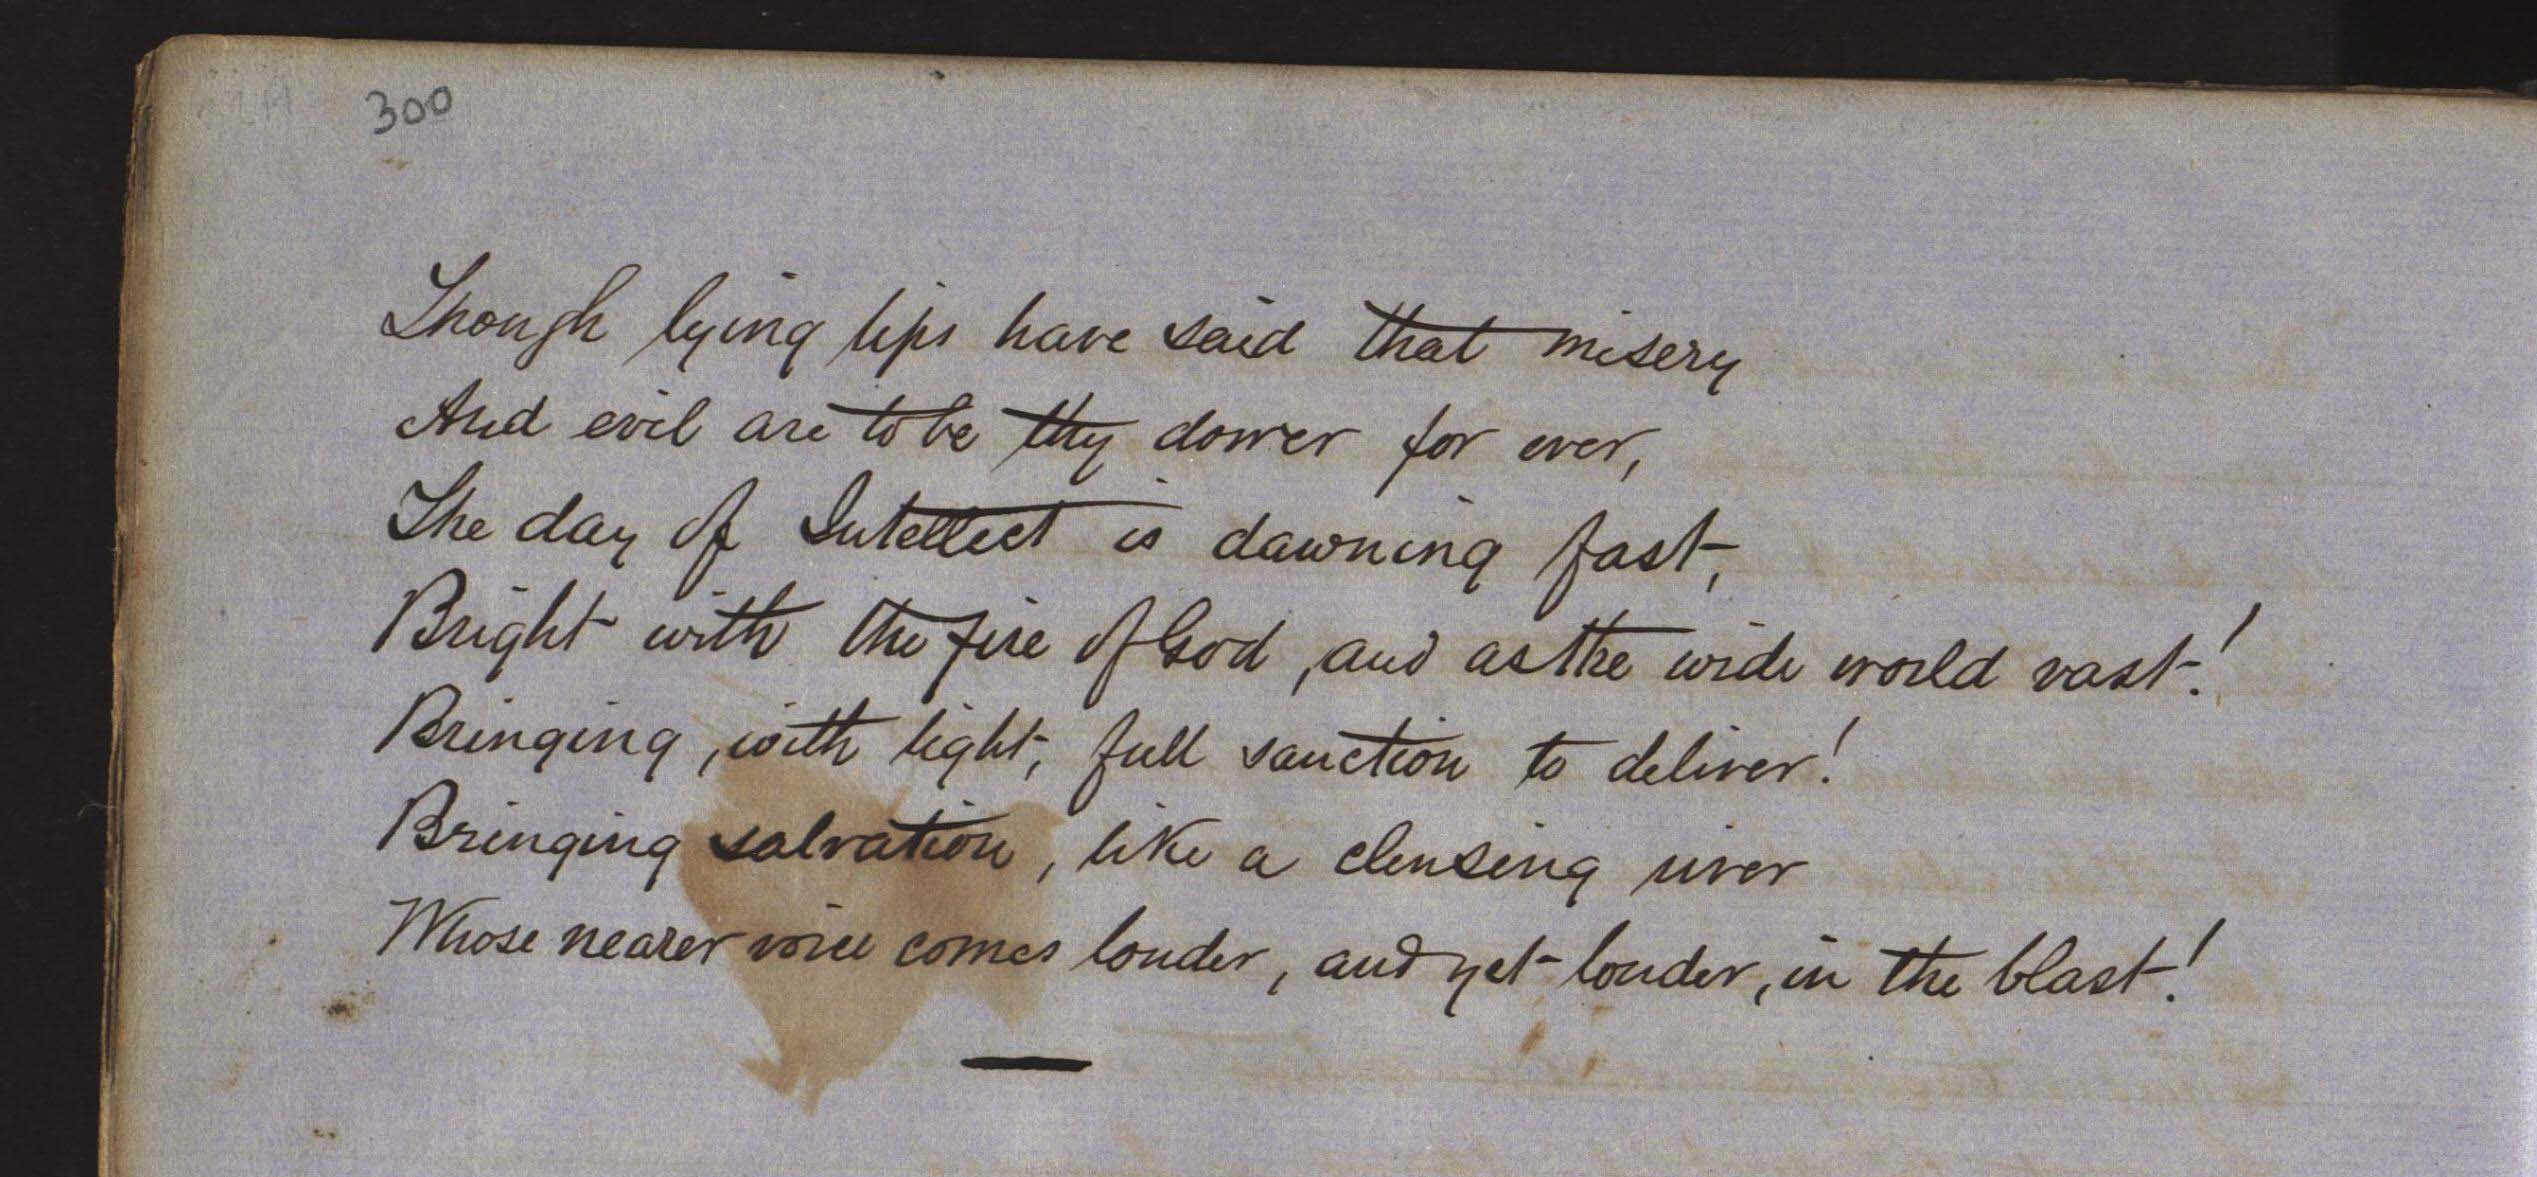 300
Though lying lips have said that misery
And evil are to be thy dower for ever,
The day of Intellect is dawning fast,
Bright with the fire of God, and as the wide world vast!
Bringing, with light, full sanction to deliver!
Bringing salvation, like a clensing river
Whose nearer voice comes louder, and yet louder, in the blast!